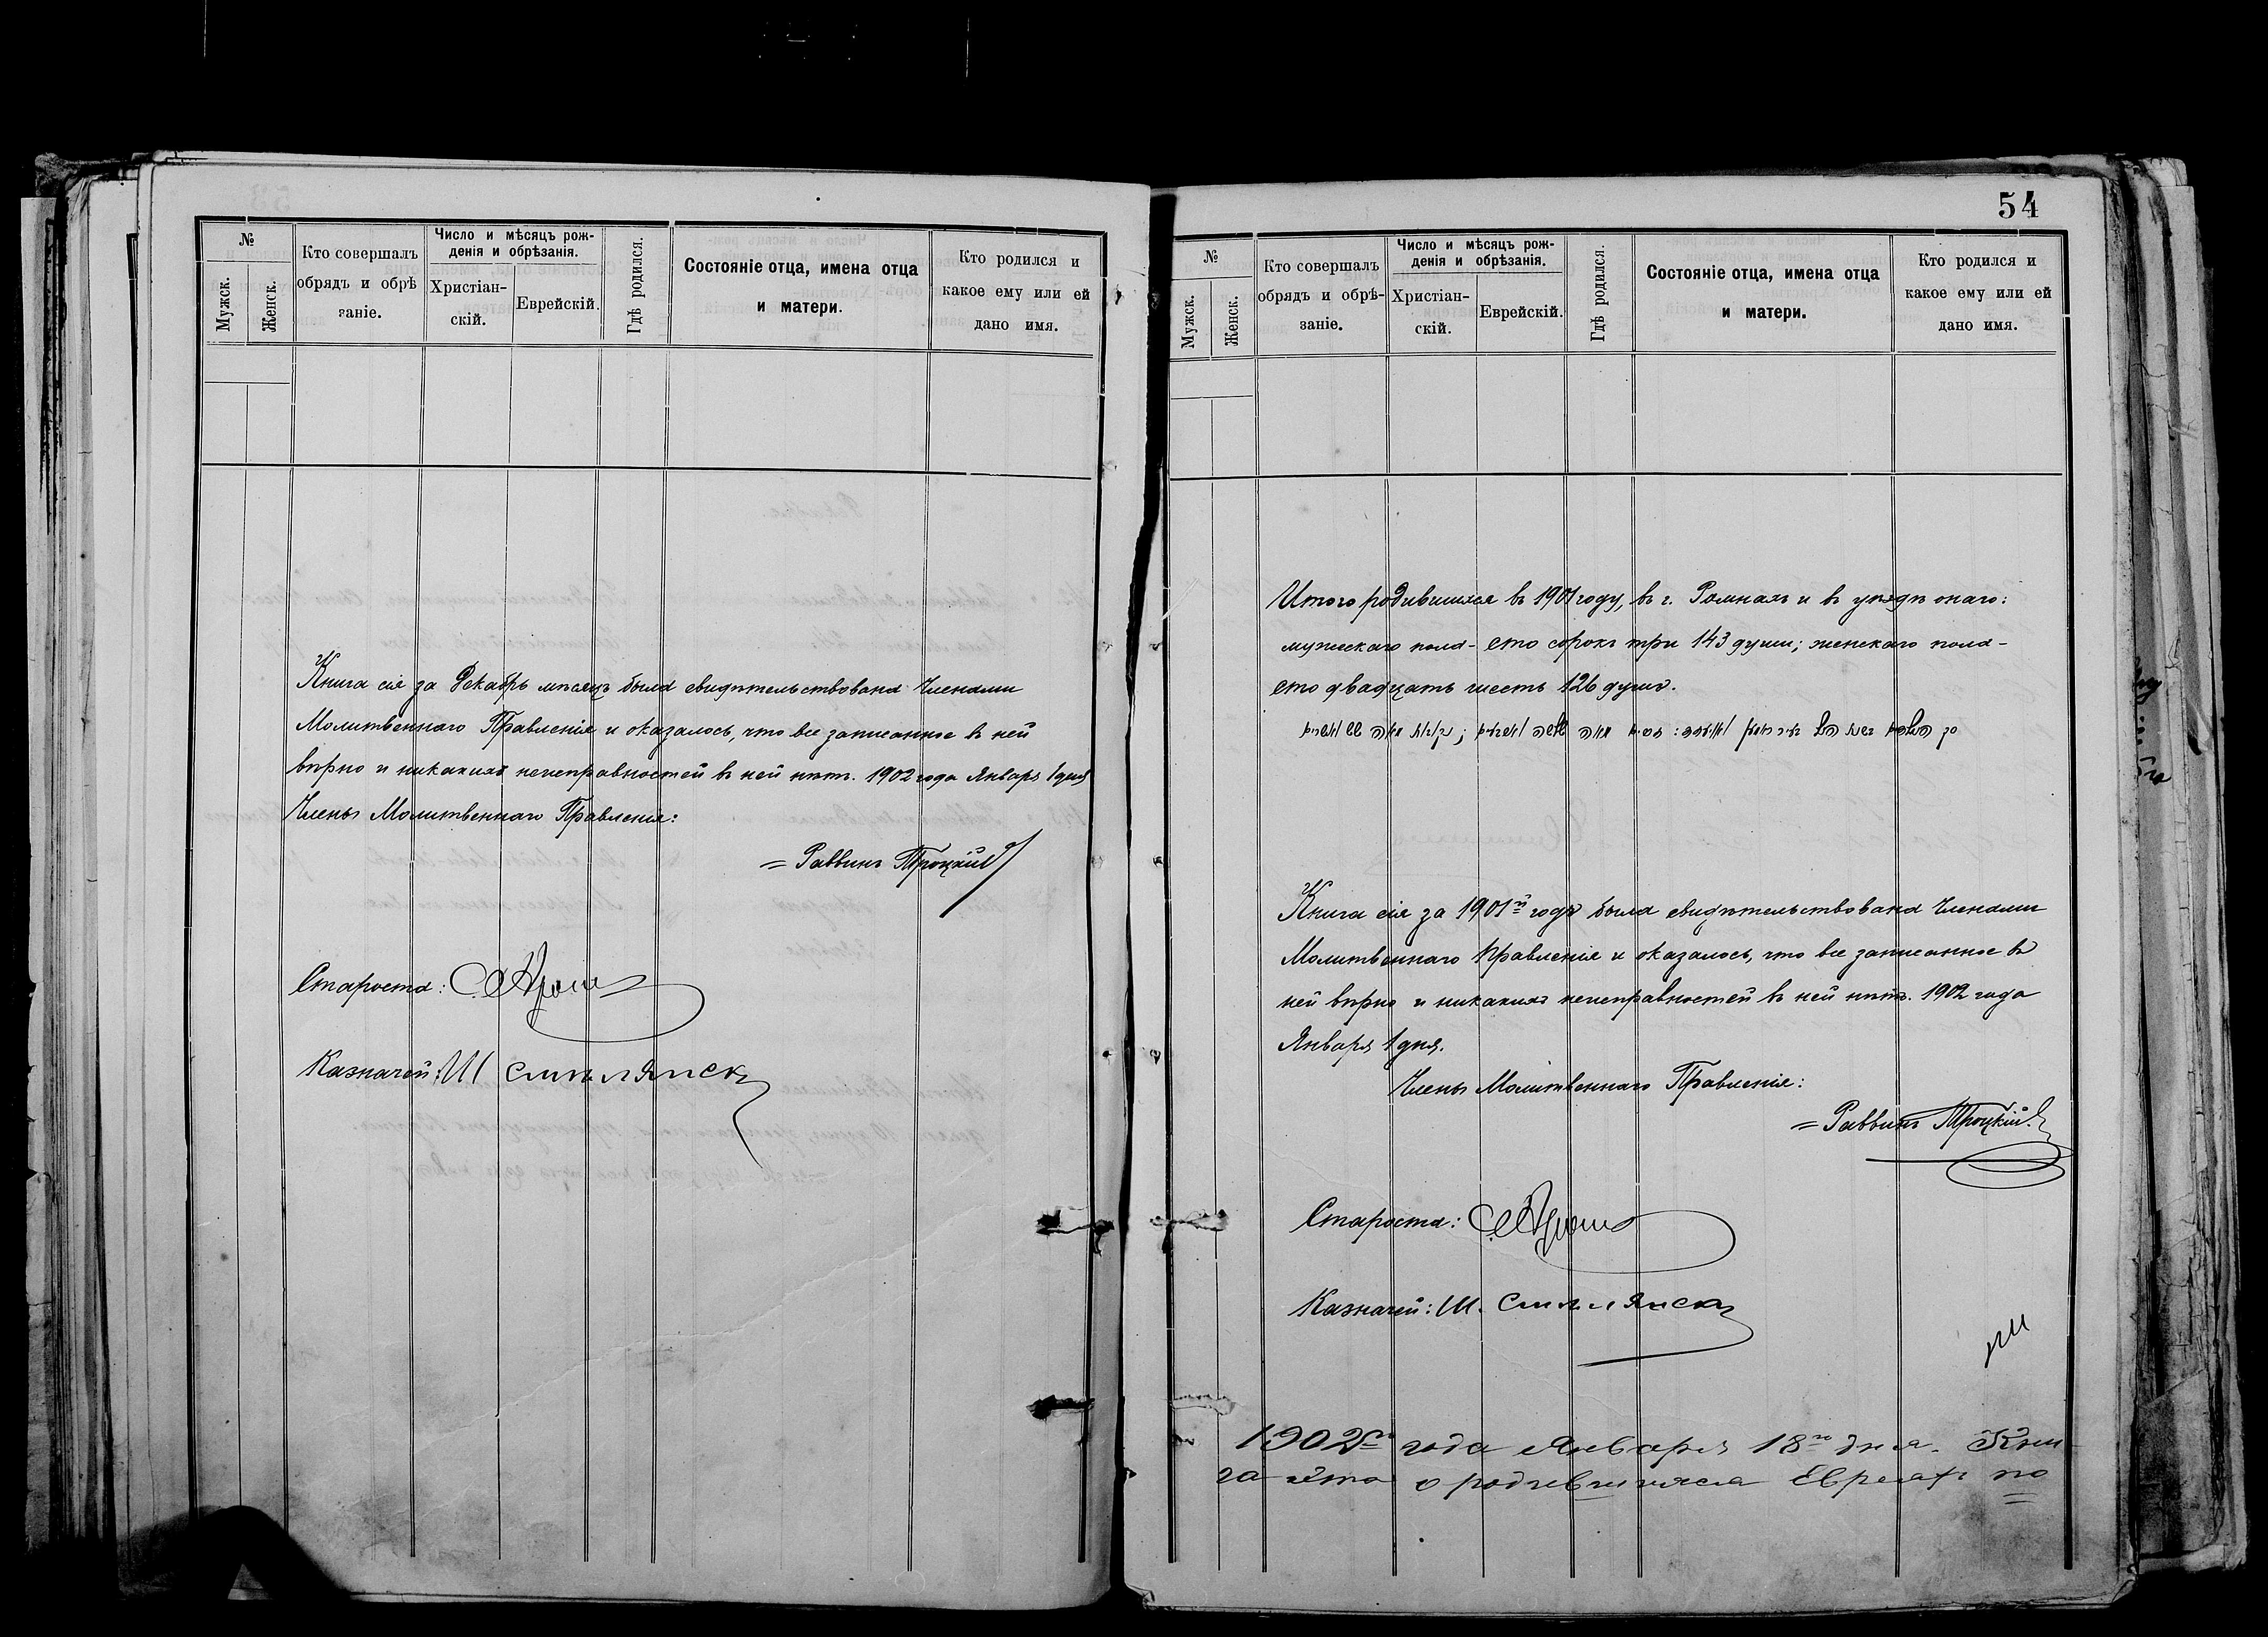 №
Мужск.
Женск.
Кто совершалъ
обрядъ и обрѣ
заніе.
Число и мѣсяцъ рож-
денія и обрѣзанія.
Христіан-
скій.
Еврейскій.
Гдѣ родился.
Состояніе отца, имена отца
и матери.
Кто родился и
какое ему или ей
дано имя.
Книга сія за Декабрь мѣсяцъ была свидѣтельствована Членами
Молитвеннаго Правленія и оказалось, что все записанное въ ней
вѣрно и никакихъ неисправностей въ ней нѣтъ. 1902 года Января 1 дня
Члены Молитвеннаго Правленія:
= Раввинъ Троцкій
Староста:
Казначей: Ш Смилянск
54
№
Мужск.
Женск.
Кто совершалъ
обрядъ и обрѣ-
заніе.
Число и мѣсяцъ рож-
денія и обрѣзанія.
Христіан-
скій.
Еврейскій.
Гдѣ родился.
Состояніе отца, имена отца
и матери.
Кто родился и
какое ему или ей
дано имя.
Итого родившихся въ 1901 году, въ г. Ромнахъ и въ уѣздѣ онаго:
мужескаго пола - сто сорокъ три 143 души; женскаго пола -
сто двадцать шесть 126 душъ.
Книга сія за 1901й годъ была свидѣтельствована Членами
Молитвеннаго Правленія и оказалось, что все записанное въ
ней вѣрно и никакихъ неисправностей въ ней нѣтъ. 1902 года
Января 1 дня.
Члены Молитвеннаго Правленія:
= Раввинъ Троцкій.
Староста:
Казначей: Ш. Смилянск
1902го года Января 18го дня. Кни-
га эта о родившихся Евреяхъ по